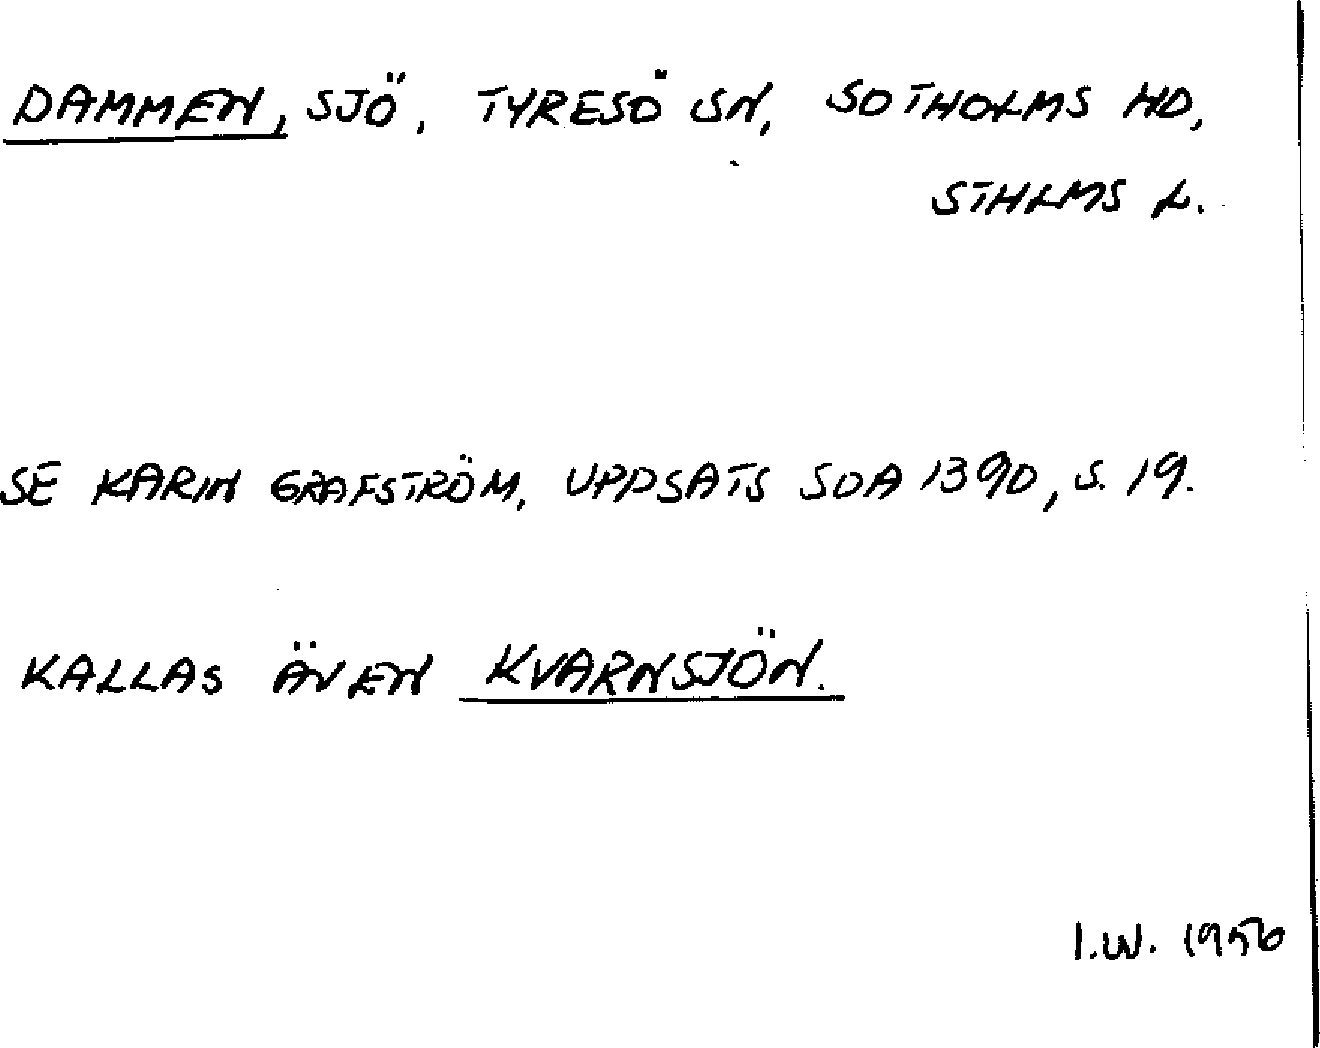 DAMMEN, SJÖ, TYRESÖ SN, SOTHOLMS HD,
STHLMS L.
SE KARIN GRAFSTRÖM, UPPSATS SOA 1390, S. 19.
KALLAS ÄVEN KVARNSJÖN.
I.W. 1956